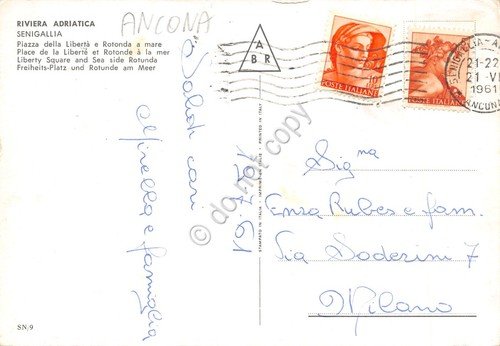 RIVIERA ADRIATICA
SENIGALLIA
Piazza della Libertà e Rotonda a mare
Place de la Liberté et Rotonde à la mer
Liberty Square and Sea side Rotunda
Freiheits-Platz und Rotunde am Meer
ANCONA
A
B R
10
POSTE ITALIANE
POSTE ITALIANE
SENIGALLIA
21-22
21 VII
1961
ANCONA
"Saluti cari"
Mirella e famiglia
STAMPATO IN ITALIA - IMPRIMÉ EN ITALIE - PRINTED IN ITALY
do not copy
Sig.na
Enza Rubes e fam.
Via Soderini 7
Milano
SN/9